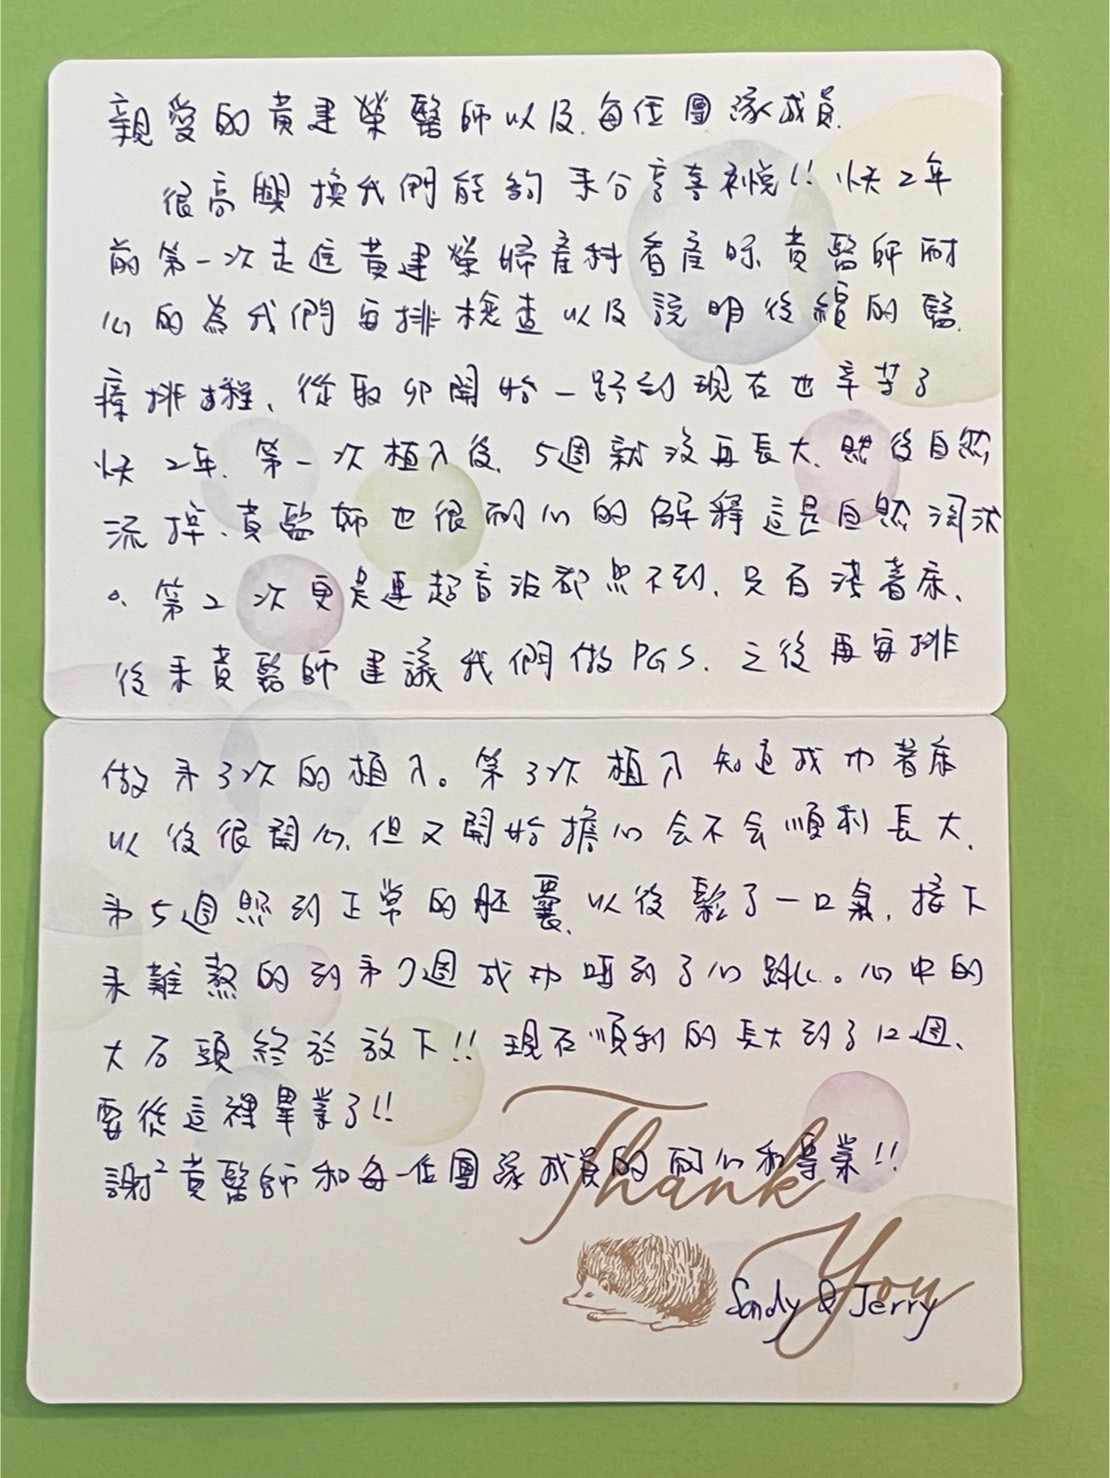 親愛的黃建榮醫師以及每位團隊成員
很高興換我們能夠來分享喜悅!! 快2年
前第一次走進黃建榮婦產科看產 黃醫師耐
心的為我們安排檢查以及說明後續的醫
療排程、從取卵開始一路到現在也辛苦了
快2年. 第一次植入後, 5週就沒再長大、然後自然
流掉、黃醫師也很耐心的解釋這是自然淘汰
。第2次更是連超音波都照不到、只有淺著床、
後來黃醫師建議我們做PGS. 之後再安排
做第3次的植入。第3次植入知道成功著床
以後很開心, 但又開始擔心會不會順利長大、
第5週照到正常的胚囊、以後鬆了一口氣, 接下
來難熬的到第7週成功照到了心跳。心中的
大石頭終於放下!! 現在順利的長大到了12週、
要從這裡畢業了!!
謝²黃醫師和每一位團隊成員的耐心和專業!!
Thank
You
Sandy & Jerry